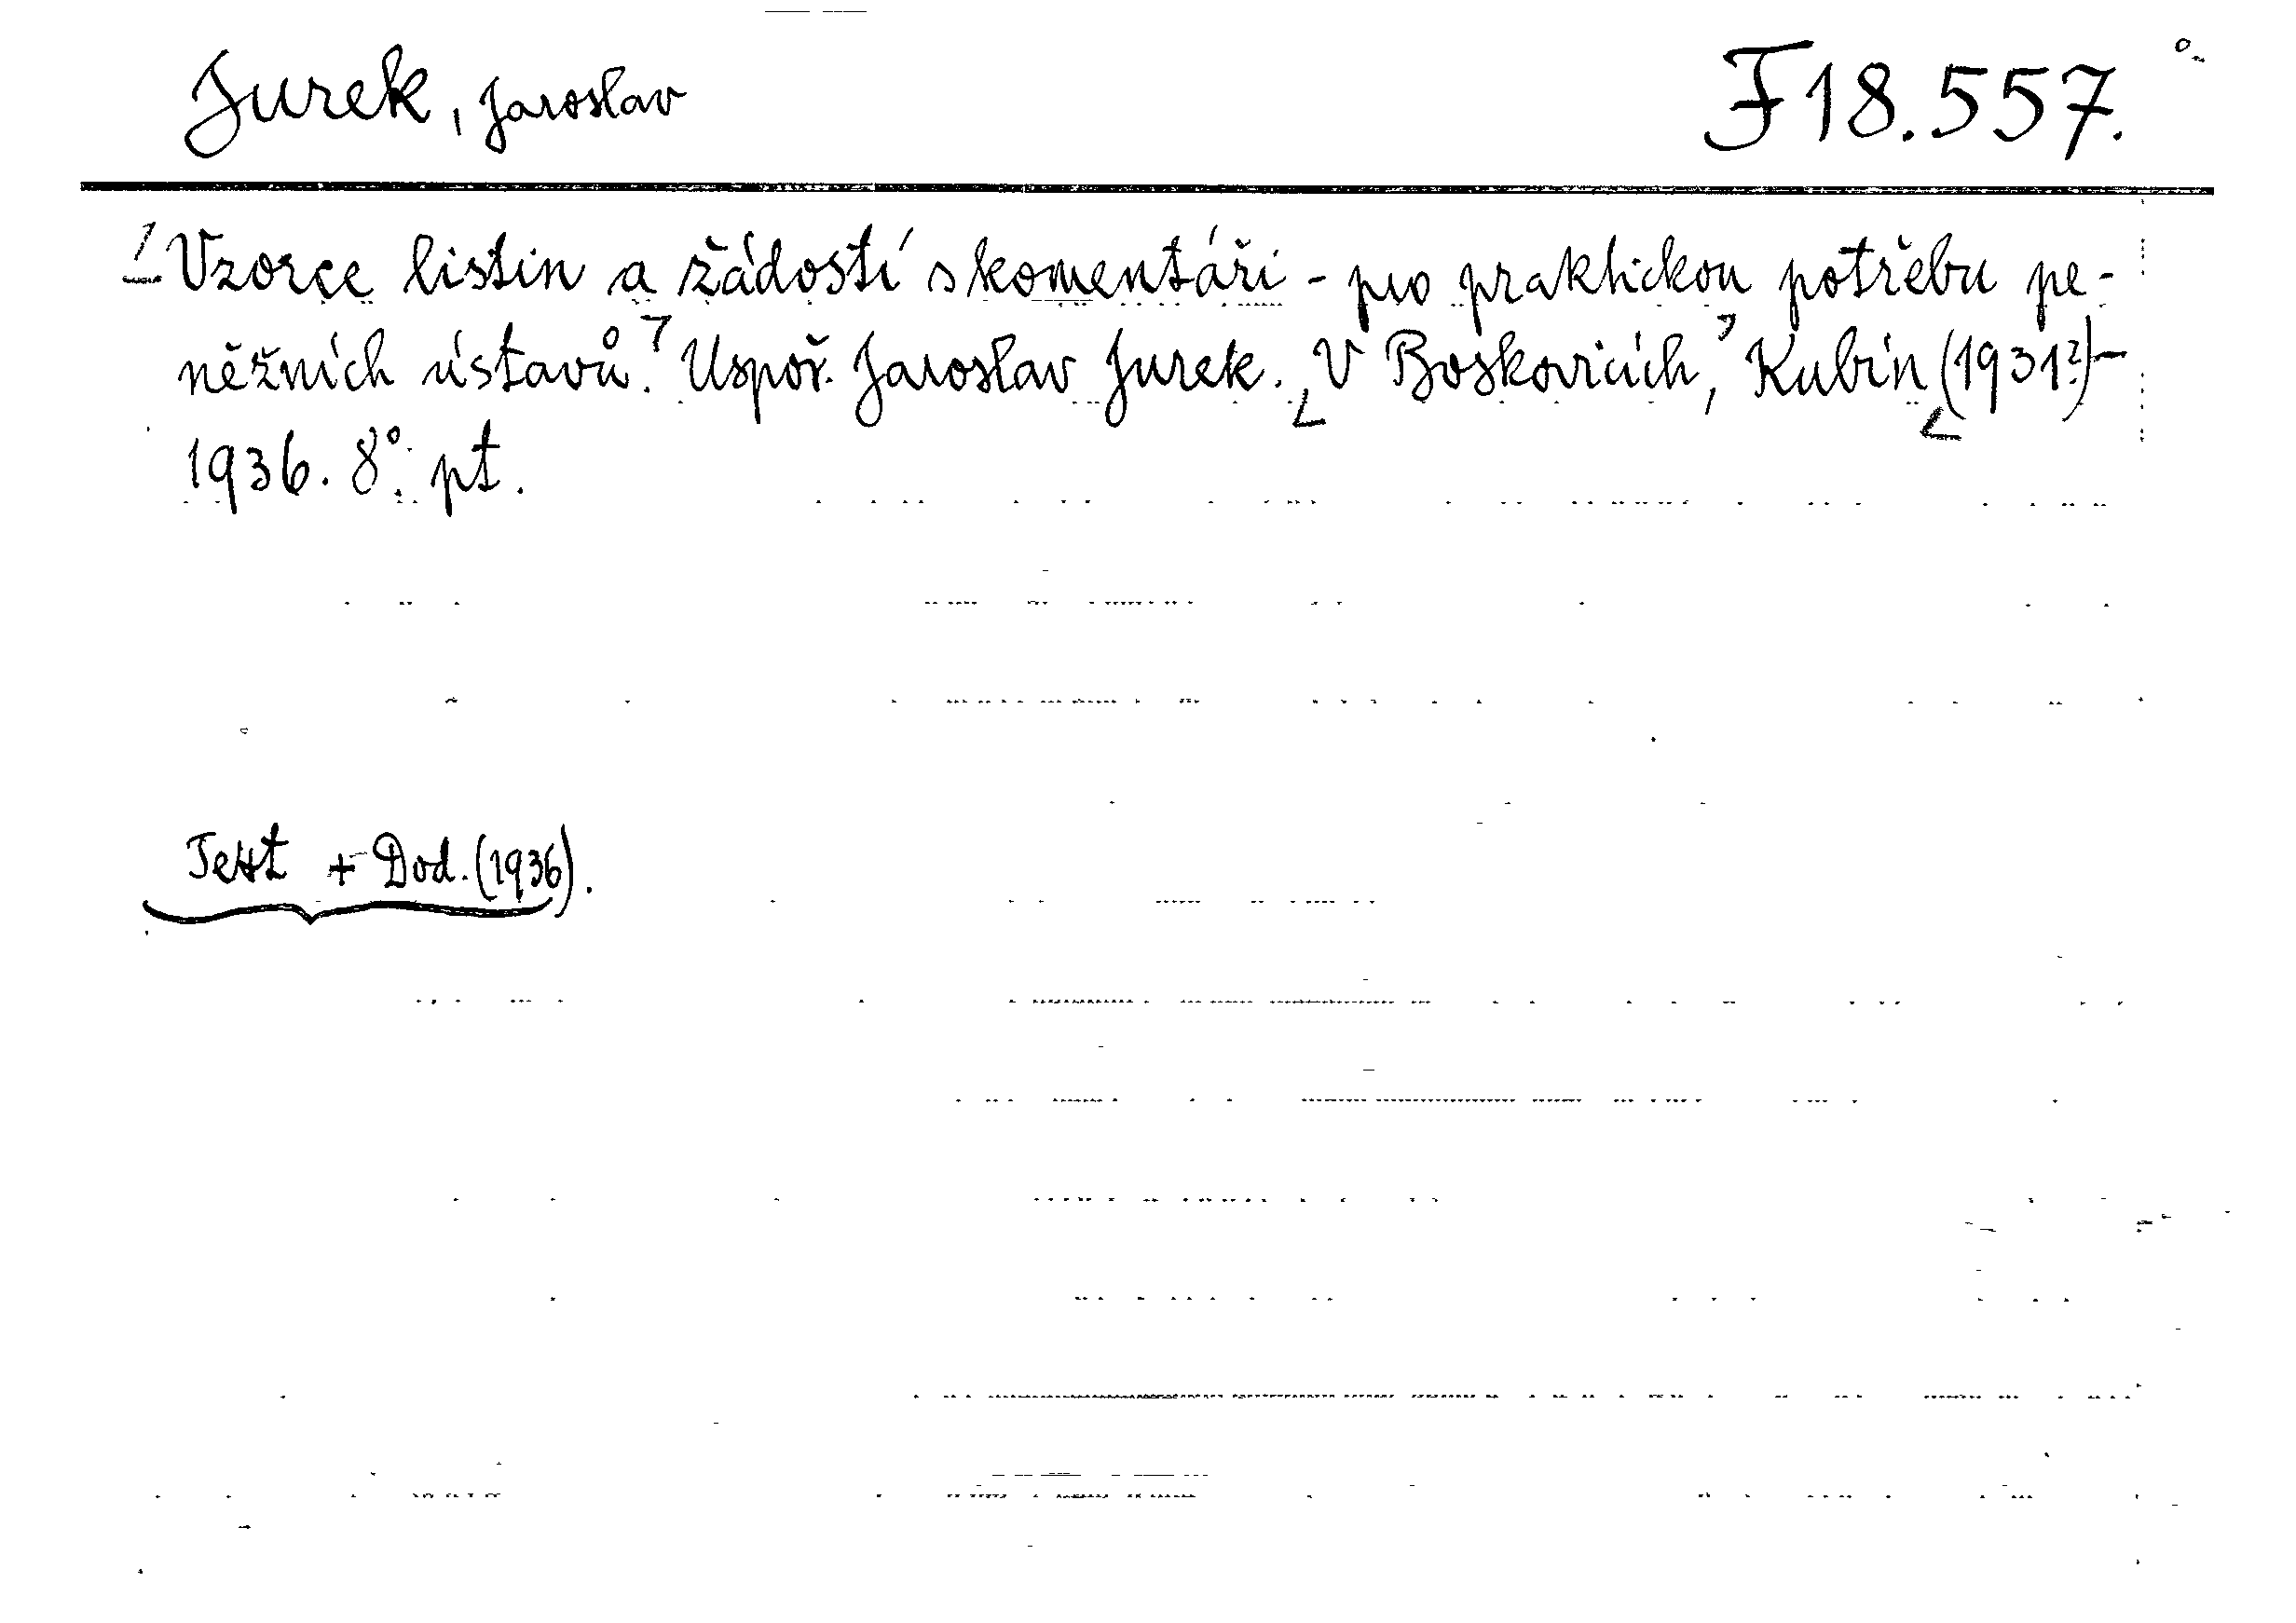 Jurek, Jaroslav F 18.557.
Vzorce listin a žádostí s komentáři - pro praktickou potřebu pe-
něžních ústavů. Uspoř. Jaroslav Jurek. V Boskovicích, Kubín (1931?)-
1936. 8°. pt.
Text + Dod. (1936).